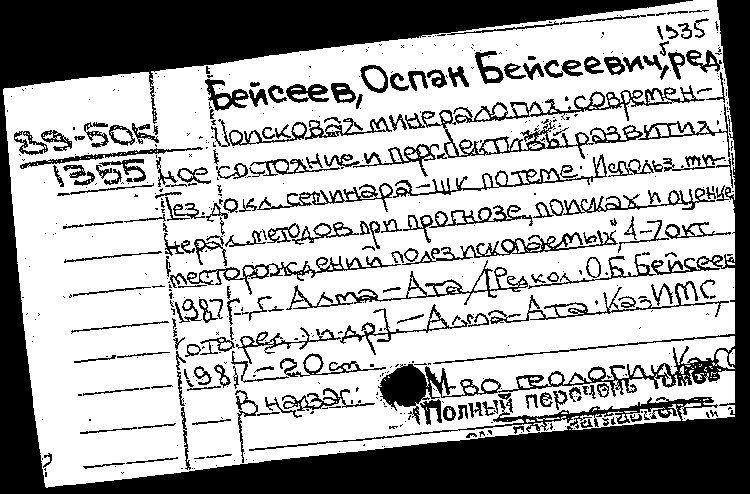 1935
Бейсеев, Оспан Бейсеевич, ред.
89-50к
Поисковая минералогия: современ-
1355
ное состояние и перспективы развития:
Тез. докл. семинара-шк по теме: „Использ. ми-
нерал. методов при прогнозе, поисках и оценке
месторождений полез ископаемых“, 4-7 окт.
1987 г., г. Алма-Ата / [Редкол.: О.Б. Бейсеев
(отв. ред.) и др.] - Алма-Ата: КазИМС,
1987 - 20 см.
В надзаг.: М-во геологии КазСС
Полный перечень томов